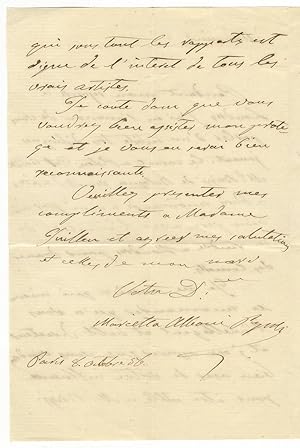 qui sous tout les rapports est
digne de l'interet de tous les
vrais artistes.
Je conte donc que vous
voudrez bien assister mon proté
gé et je vous en serai bien
reconnaissante.
Veuillez presenter mes
compliments à Madame
Guillou et agreez mes salutations
et celles de mon mari.
Votre D.
Marietta Alboni Pepoli
Paris 8. octobre 56.